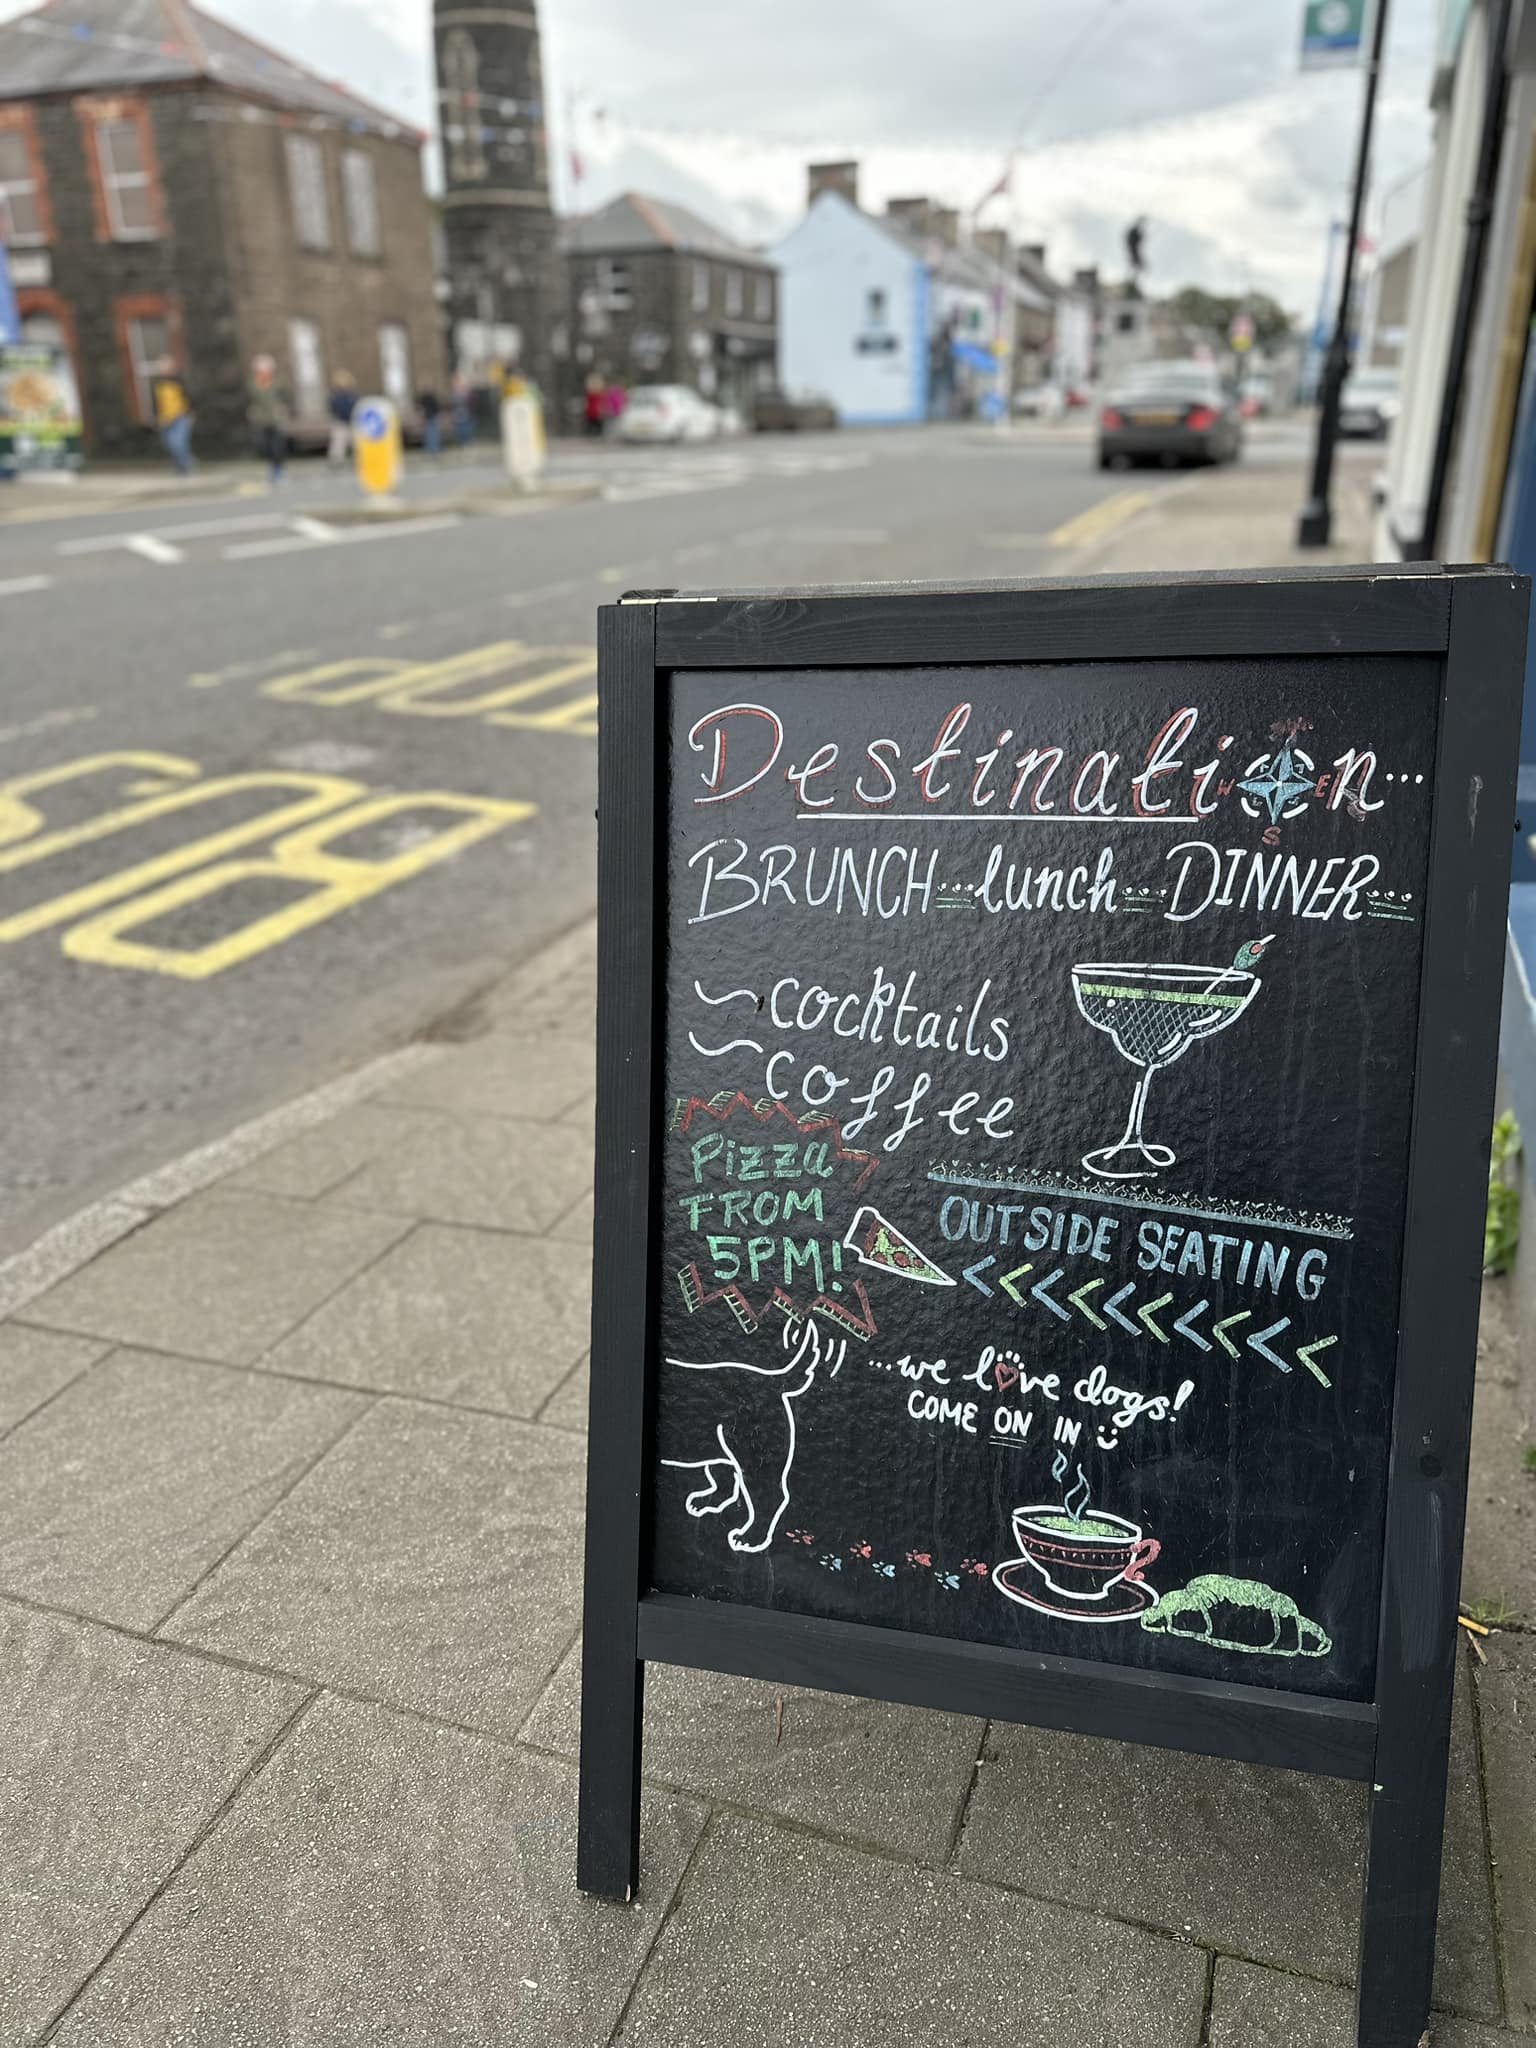 Destination...
BRUNCH...lunch...DINNER...
cocktails
coffee
Pizza
FROM
5PM!
OUTSIDE SEATING
<<<<<<<<<<
...we love dogs!
COME ON IN
W E
S
BUS